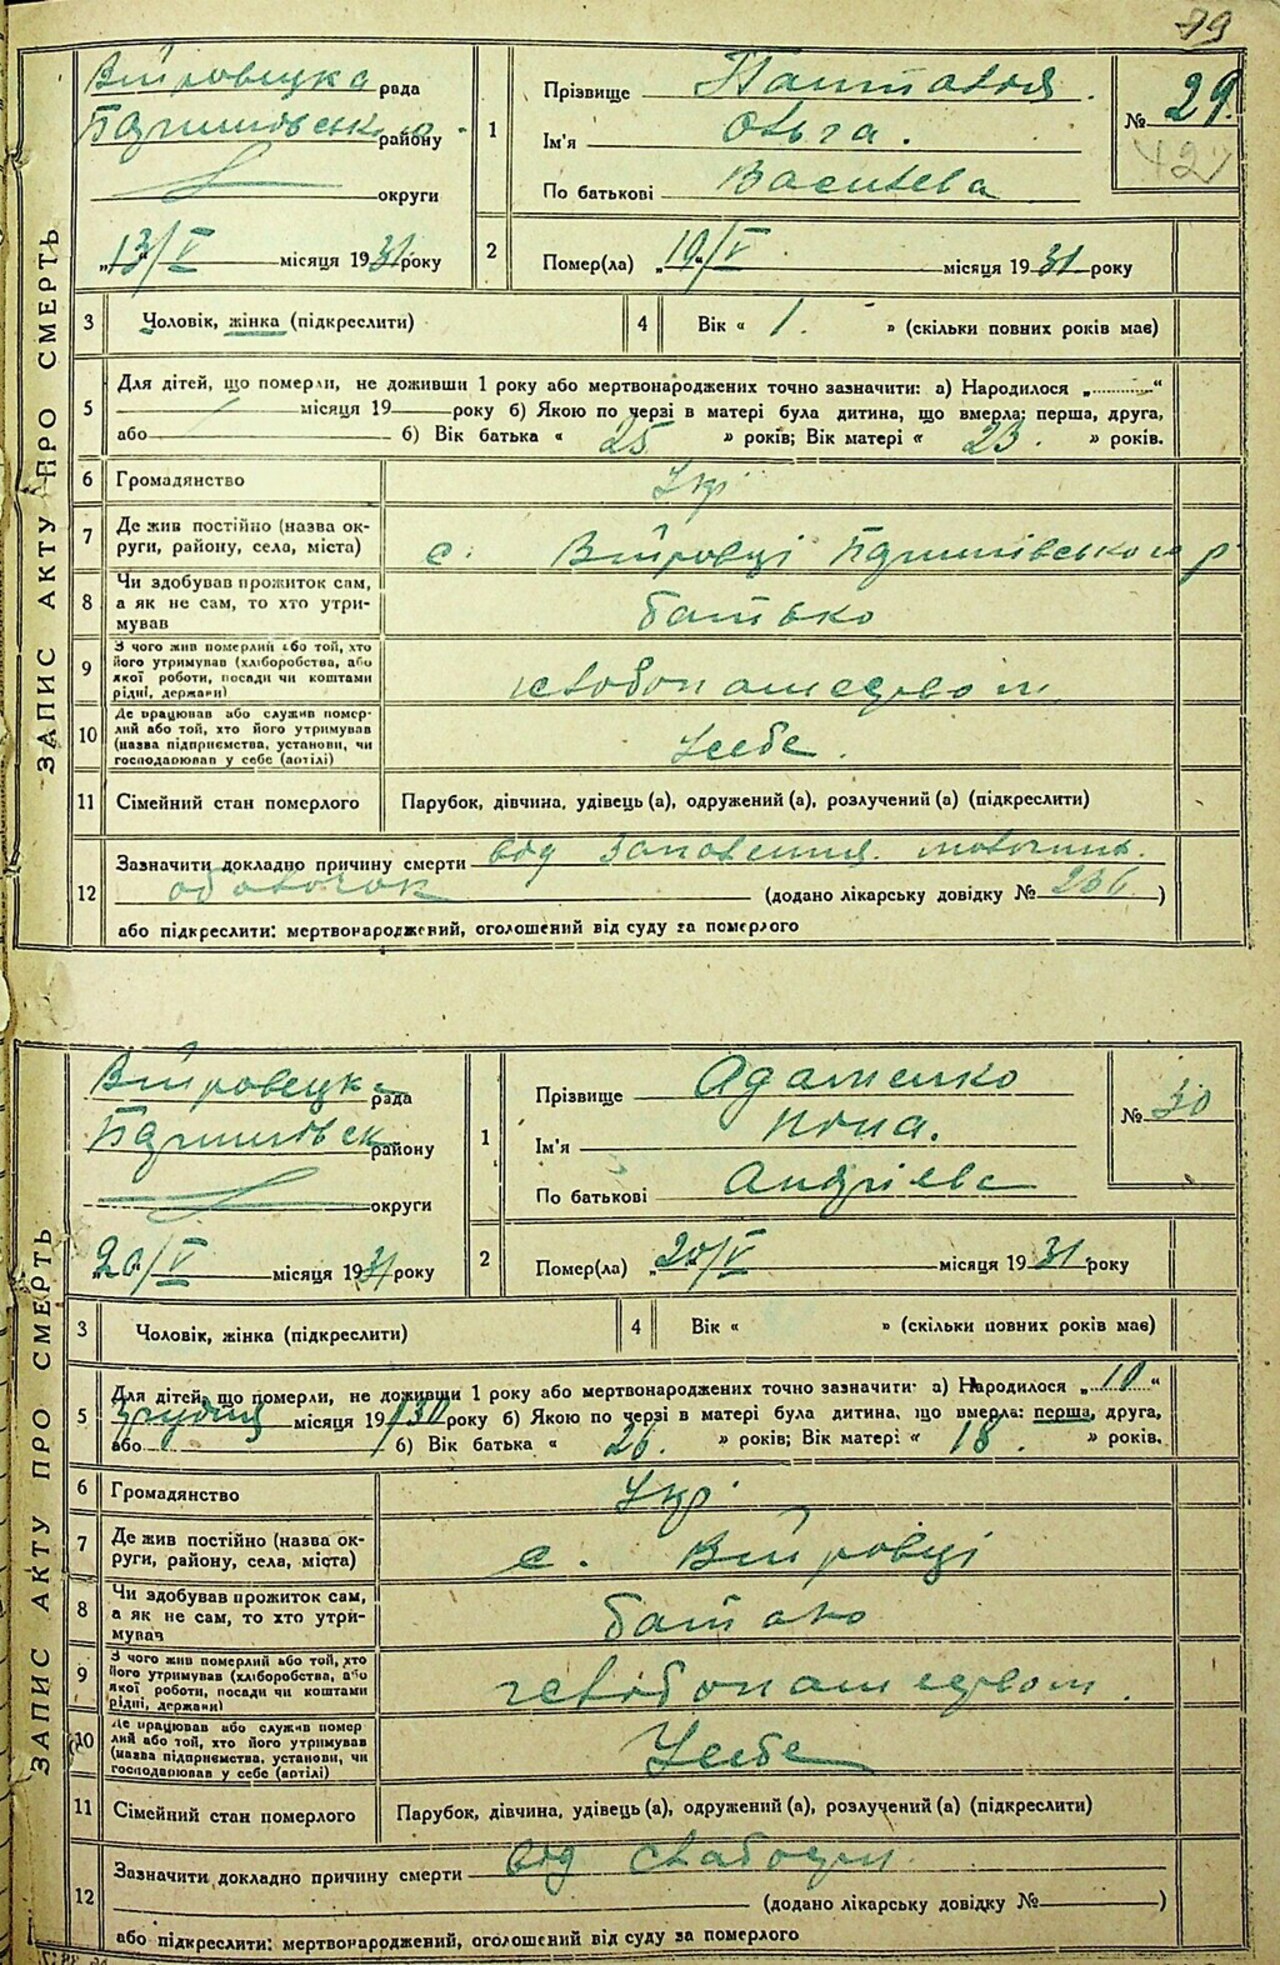 79
ЗАПИС АКТУ ПРО СМЕРТЬ
Війтовецка рада
району
округи
„13/V місяця 1931 року
1
Прізвище
Ім'я Ольга.
По батькові Василева
№ 29.
42
2
Помер(ла) „10/V місяця 1931 року
3 Чоловік, жінка (підкреслити)
4 Вік « 1. » (скільки повних років має)
5 Для дітей, що померли, не доживши 1 року або мертвонароджених точно зазначити: а) Народилося „ “
місяця 19 року б) Якою по черзі в матері була дитина, що вмерла: перша, друга,
або б) Вік батька « 25 » років; Вік матері « 23. » років.
6 Громадянство Укр
7 Де жив постійно (назва ок-
руги, району, села, міста) с. р
8 Чи здобував прожиток сам,
а як не сам, то хто утри-
мував батько
9 З чого жив померлий або той, хто
його утримував (хліборобства, або
якої роботи, посади чи коштами
рідні, держави) хлібопашеством
10 Де працював або служив помер-
лий або той, хто його утримував
(назва підприємства, установи, чи
господарював у себе (артілі) Усебе.
11 Сімейний стан померлого Парубок, дівчина, удівець (а), одружений (а), розлучений (а) (підкреслити)
12 Зазначити докладно причину смерти від запалення мозгових
оболочок (додано лікарську довідку № 236 )
або підкреслити: мертвонароджений, оголошений від суду за померлого
ЗАПИС АКТУ ПРО СМЕРТЬ
рада
району
округи
„20“/V місяця 1931 року
1
Прізвище Адаменко
Ім'я
По батькові Андріева
№ 30
2
Помер(ла) „20“/V місяця 1931 року
3 Чоловік, жінка (підкреслити)
4 Вік « » (скільки повних років має)
5 Для дітей, що померли, не доживши 1 року або мертвонароджених точно зазначити: а) Народилося „ 10 “
грудня місяця 19/30 року б) Якою по черзі в матері була дитина, що вмерла: перша, друга,
або б) Вік батька « 26. » років; Вік матері « 18. » років.
6 Громадянство Укр
7 Де жив постійно (назва ок-
руги, району, села, міста) с.
8 Чи здобував прожиток сам,
а як не сам, то хто утри-
мував батько
9 З чого жив померлий або той, хто
його утримував (хліборобства, або
якої роботи, посади чи коштами
рідні, держави) хлібопашеством.
10 Де працював або служив помер
лий або той, хто його утримував
(назва підприємства, установи, чи
господарював у себе (артілі) Усебе
11 Сімейний стан померлого Парубок, дівчина, удівець (а), одружений (а), розлучений (а) (підкреслити)
12 Зазначити докладно причину смерти від слабощи
(додано лікарську довідку № )
або підкреслити: мертвонароджений, оголошений від суду за померлого